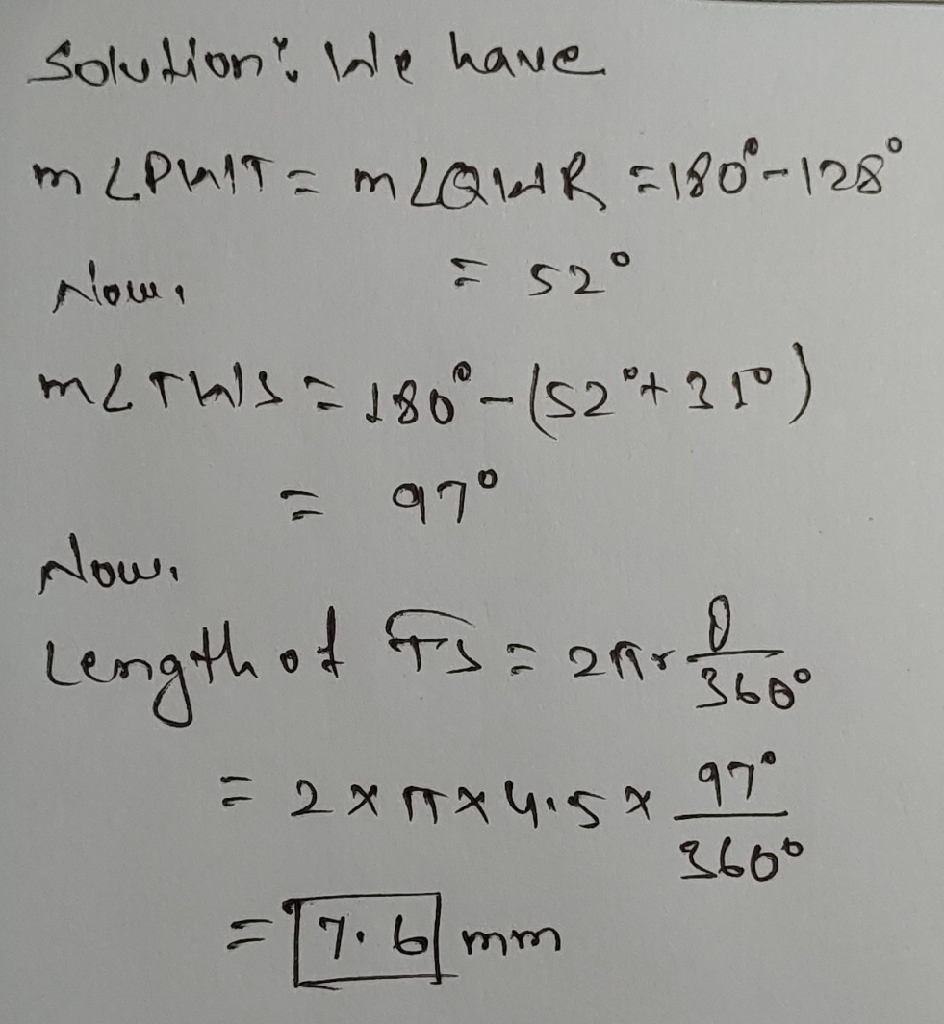 Solution: We have
m∠PWT = m∠QWR = 180° - 128°
Now, = 52°
m∠TWS = 180° - (52° + 31°)
= 97°
Now,
Length of TS = 2πr θ/360°
= 2 × π × 4.5 × 97°/360°
= 7.6 mm